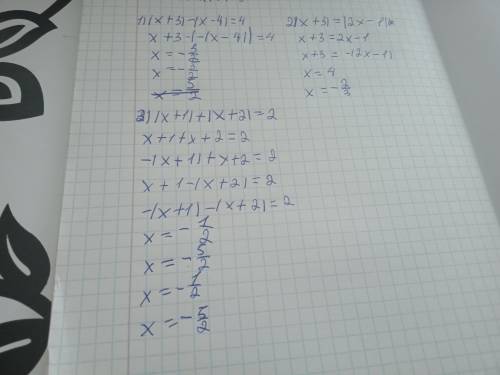 1) |x+3|-|x-4|=4
x+3-(-(x-4))=4
2) |x+3|=|2x-1|
x+3=2x-1
x+3=-(2x-1)
x=4
x=-2/3
3) |x+1|+|x+2|=2
x+1+x+2=2
-(x+1)+x+2=2
x+1-(x+2)=2
-(x+1)-(x+2)=2
x=-1/2
x=-5/2
x=-1/2
x=-5/2